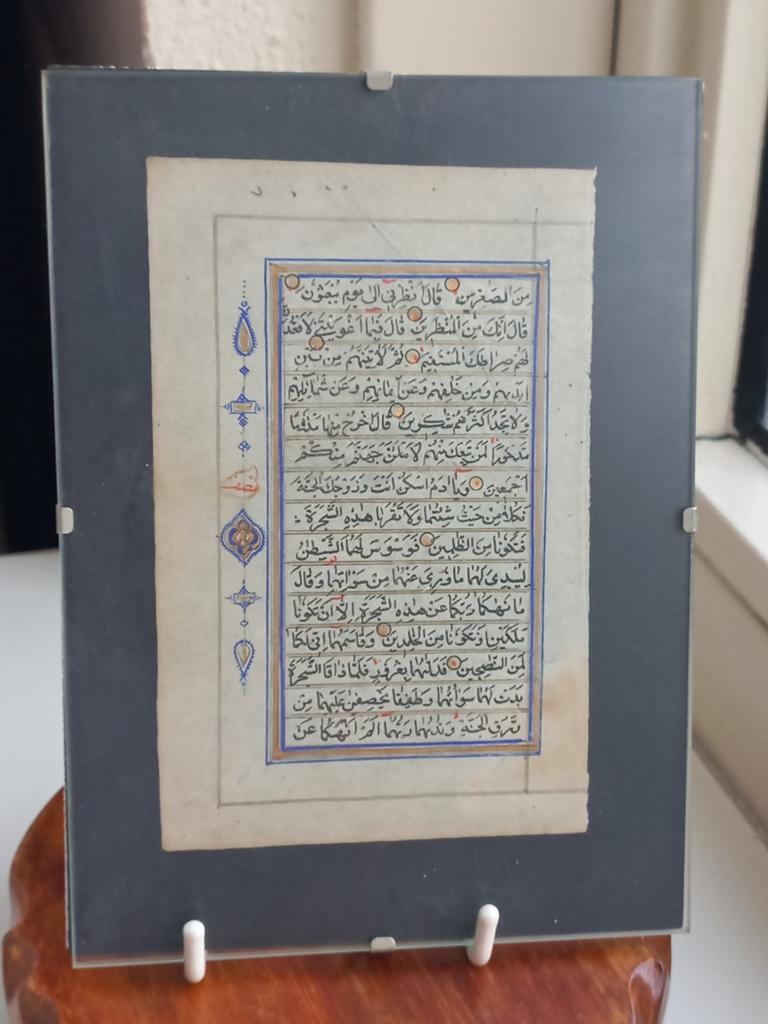 مِنَ الصَّغِرِينَ قَالَ أَنْظِرْنِي إِلَى يَوْمِ يُبْعَثُونَ
قَالَ إِنَّكَ مِنَ الْمُنْظَرِينَ قَالَ فَبِمَا أَغْوَيْتَنِي لَأَقْعُدَنَّ
لَهُمْ صِرَاطَكَ الْمُسْتَقِيمَ ثُمَّ لَآتِيَنَّهُمْ مِنْ بَيْنِ
أَيْدِيهِمْ وَمِنْ خَلْفِهِمْ وَعَنْ أَيْمَانِهِمْ وَعَنْ شَمَائِلِهِمْ
وَلَا تَجِدُ أَكْثَرَهُمْ شَكِرِينَ قَالَ اخْرُجْ مِنْهَا مَذْءُومًا
مَدْحُورًا لَمَنْ تَبِعَكَ مِنْهُمْ لَأَمْلَئَنَّ جَهَنَّمَ مِنْكُمْ
أَجْمَعِينَ وَيَا آدَمُ اسْكُنْ أَنْتَ وَزَوْجُكَ الْجَنَّةَ
فَكُلَا مِنْ حَيْثُ شِئْتُمَا وَلَا تَقْرَبَا هَذِهِ الشَّجَرَةَ
فَتَكُونَا مِنَ الظَّلِمِينَ فَوَسْوَسَ لَهُمَا الشَّيْطَنُ
لِيُبْدِيَ لَهُمَا مَا وُرِيَ عَنْهُمَا مِنْ سَوْاتِهِمَا وَقَالَ
مَا نَهَكُمَا رَبُّكُمَا عَنْ هَذِهِ الشَّجَرَةِ إِلَّا أَنْ تَكُونَا
مَلَكَيْنِ أَوْ تَكُونَا مِنَ الْخَلِدِينَ وَقَاسَمَهُمَا إِنِّي لَكُمَا
لَمِنَ النَّصِحِينَ فَدَلَّهُمَا بِغُرُورٍ فَلَمَّا ذَاقَا الشَّجَرَةَ
بَدَتْ لَهُمَا سَوْاتُهُمَا وَطَفِقَا يَخْصِفَنِ عَلَيْهِمَا مِنْ
وَرَقِ الْجَنَّةِ وَنَدَهُمَا رَبُّهُمَا أَلَمْ أَنْهَكُمَا عَنْ